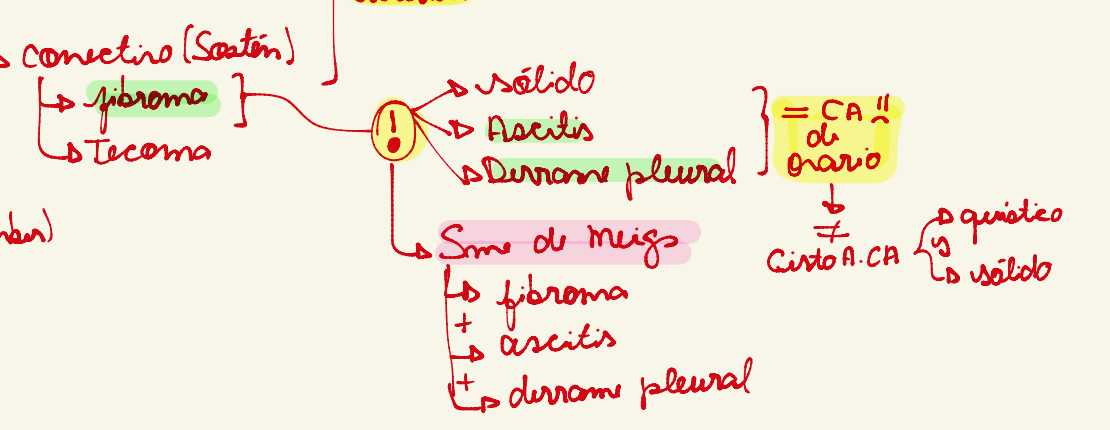 Conectivo (Sostén)
fibroma
Tecoma
!
sólido
Ascitis
Derrame pleural
= CA
de
ovario
≠
Cisto A. CA
quístico
y
sólido
Sme de Meigs
fibroma
+
ascitis
+
derrame pleural